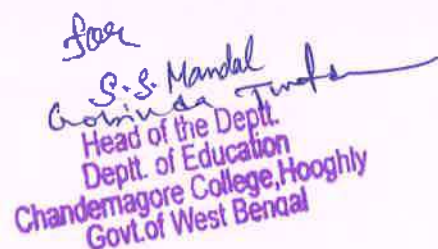 for
S.S. Mandal
Gobinda
Head of the Deptt.
Deptt. of Education
Chandernagore College,Hooghly
Govt.of West Bengal